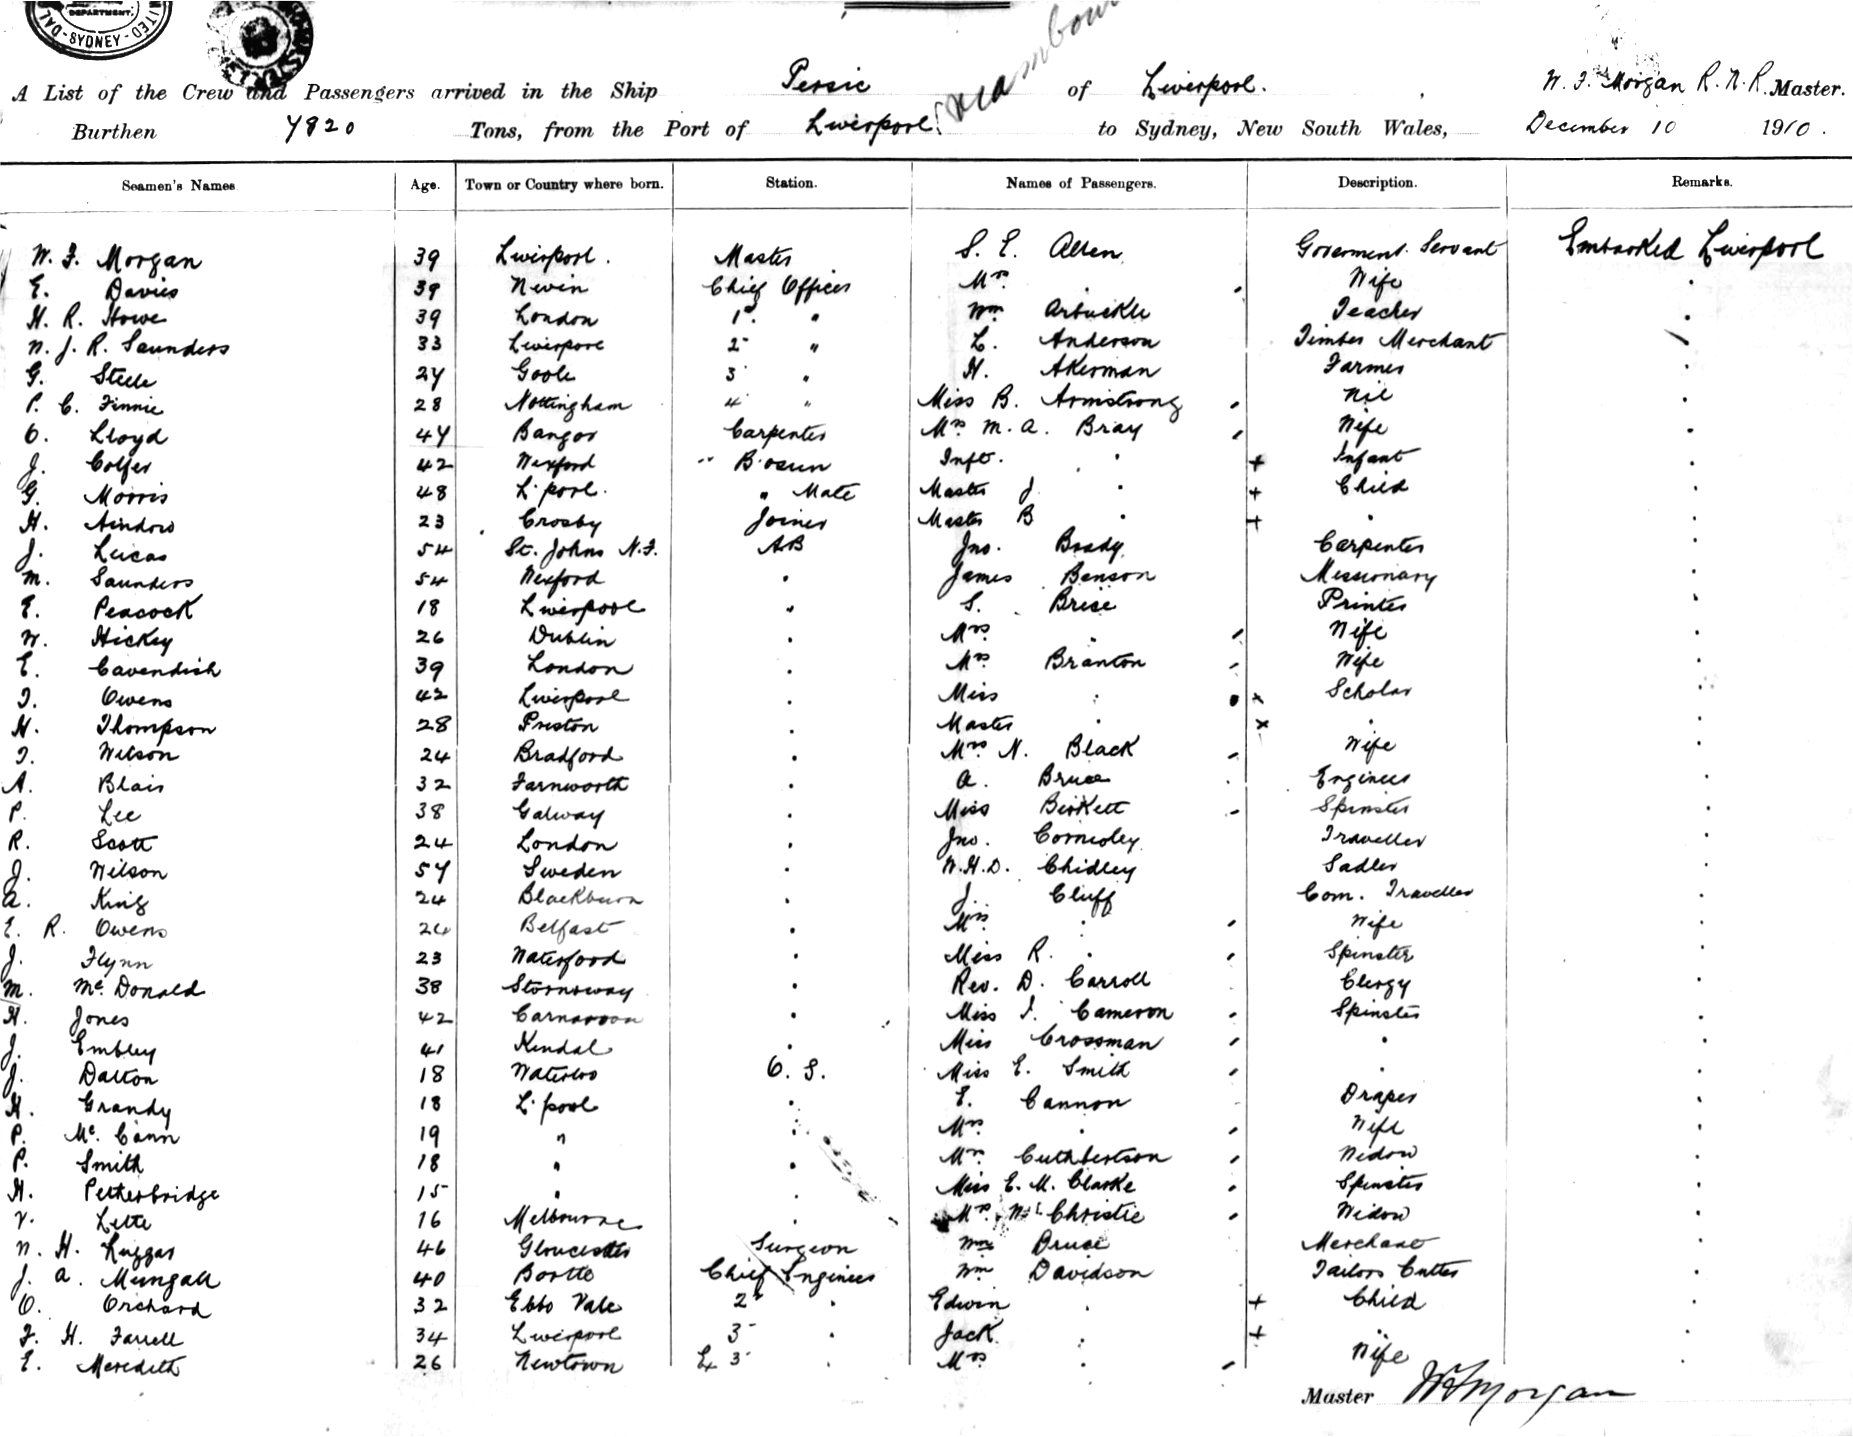 DEPARTMENT.
SYDNEY
A List of the Crew and Passengers arrived in the Ship Persic of Liverpool. W. F. Morgan R.N.R. Master.
Burthen 7820 Tons, from the Port of Liverpool to Sydney, New South Wales, December 10 1910.
Seamen's Names Age. Town or Country where born. Station. Names of Passengers. Description. Remarks.
W. F. Morgan 39 Liverpool. Master S. E. Allen Goverment Servant Embarked Liverpool
E. Davies 39 Nevin Chief Officer Mrs " Wife "
H. R. Howe 39 London 1st " Wm Arbuckle Teacher "
N. J. R. Saunders 33 Liverpool 2 " L. Anderson Timber Merchant
G. Steele 27 Goole 3 " H. Akerman Farmer "
P. C. Finnie 28 Nottingham 4 " Miss B. Armstrong Nil "
O. Lloyd 47 Bangor Carpenter Mrs M. A. Bray Wife "
J. Colfer 42 Wexford Bosun Inft. " + Infant "
G. Morris 48 L'pool. " Mate Master J " + Child "
H. Aindow 23 Crosby Joiner Master B " + " "
J. Lucas 54 St. Johns N.F. AB Jno. Brady Carpenter "
M. Saunders 54 Wexford " James Benson Missionary "
E. Peacock 18 Liverpool " S. Brise Printer "
W. Hickey 26 Dublin " Mrs " Wife "
E. Cavendish 39 London " Mrs Branton Wife "
T. Owens 42 Liverpool " Miss " x Scholar "
H. Thompson 28 Preston " Master " x " "
T. Wilson 24 Bradford " Mrs N. Black Wife "
A. Blair 32 Farnworth " A. Bruce Engineer "
P. Lee 38 Galway " Miss Birkett Spinster "
R. Scott 24 London " Jno. Cornioley Traveller "
J. Wilson 57 Sweden " W.H.D. Chidley Sadler "
A. King 24 Blackburn " J. Cluff Com. Traveller "
E. R. Owens 24 Belfast " Mrs " Wife "
J. Flynn 23 Waterford " Miss R. " Spinster "
M. McDonald 38 Stornoway " Rev. D. Carroll Clergy "
H. Jones 42 Carnarvon " Miss I. Cameron Spinster "
J. Embley 41 Kendal " Miss Crossman " "
J. Dalton 18 Waterloo O. S. Miss E. Smith " "
H. Grandy 18 L'pool " E. Cannon Draper "
P. McCann 19 " " Mrs " Wife "
P. Smith 18 " " Mrs Cuthbertson Widow "
H. Petherbridge 15 " " Miss E. M. Clarke Spinster "
V. Lette 16 Melbourne " Mrs Christie Widow "
N. H. Luggar 46 Gloucester Surgeon Wm Bruce Merchant "
J. A. Mungall 40 Bootle Chief Engineer Wm Davidson Tailors Cutter "
O. Orchard 32 Ebbo Vale 2 " Edwin " + Child "
F. H. Farrell 34 Liverpool 3 " Jack " + " "
E. Meredith 26 Newtown Ex 3 " Mrs " Wife "
Master WFMorgan